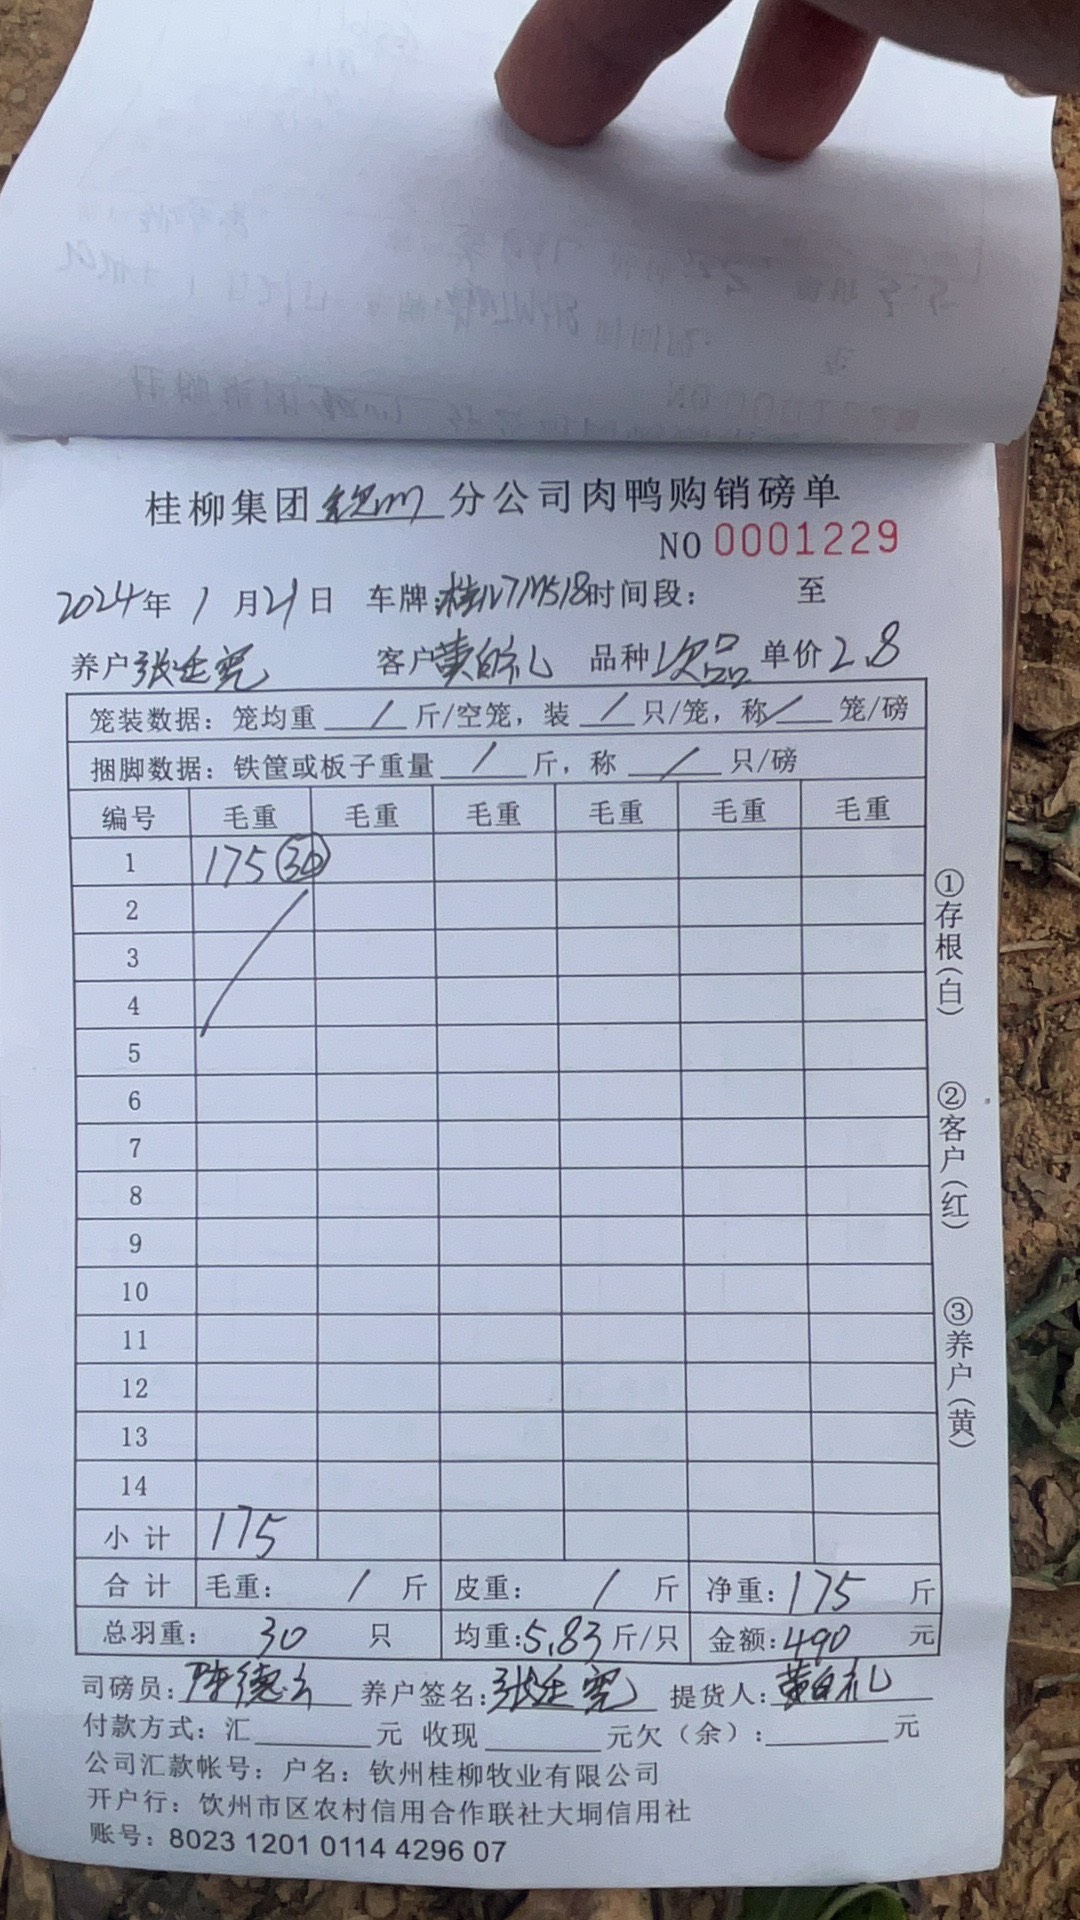 桂柳集团钦州分公司肉鸭购销磅单
NO 0001229
2024年 1月21日 车牌:桂N7M518时间段: 至
养户张廷宪 客户黄的礼 品种次品 单价2.8
笼装数据：笼均重 / 斤/空笼，装 / 只/笼，称 / 笼/磅
捆脚数据：铁筐或板子重量 / 斤，称 / 只/磅
编号 毛重 毛重 毛重 毛重 毛重 毛重
1 175 30
2
3
4
5
6
7
8
9
10
11
12
13
14
小计 175
合计 毛重： / 斤 皮重： / 斤 净重：175 斤
总羽重： 30 只 均重:5.83斤/只 金额:490 元
司磅员:陈德 养户签名:张廷宪 提货人:黄的礼
付款方式：汇 元 收现 元欠（余）: 元
公司汇款帐号：户名：钦州桂柳牧业有限公司
开户行：钦州市区农村信用合作联社大垌信用社
账号：8023 1201 0114 4296 07
①存根（白）
②客户（红）
③养户（黄）